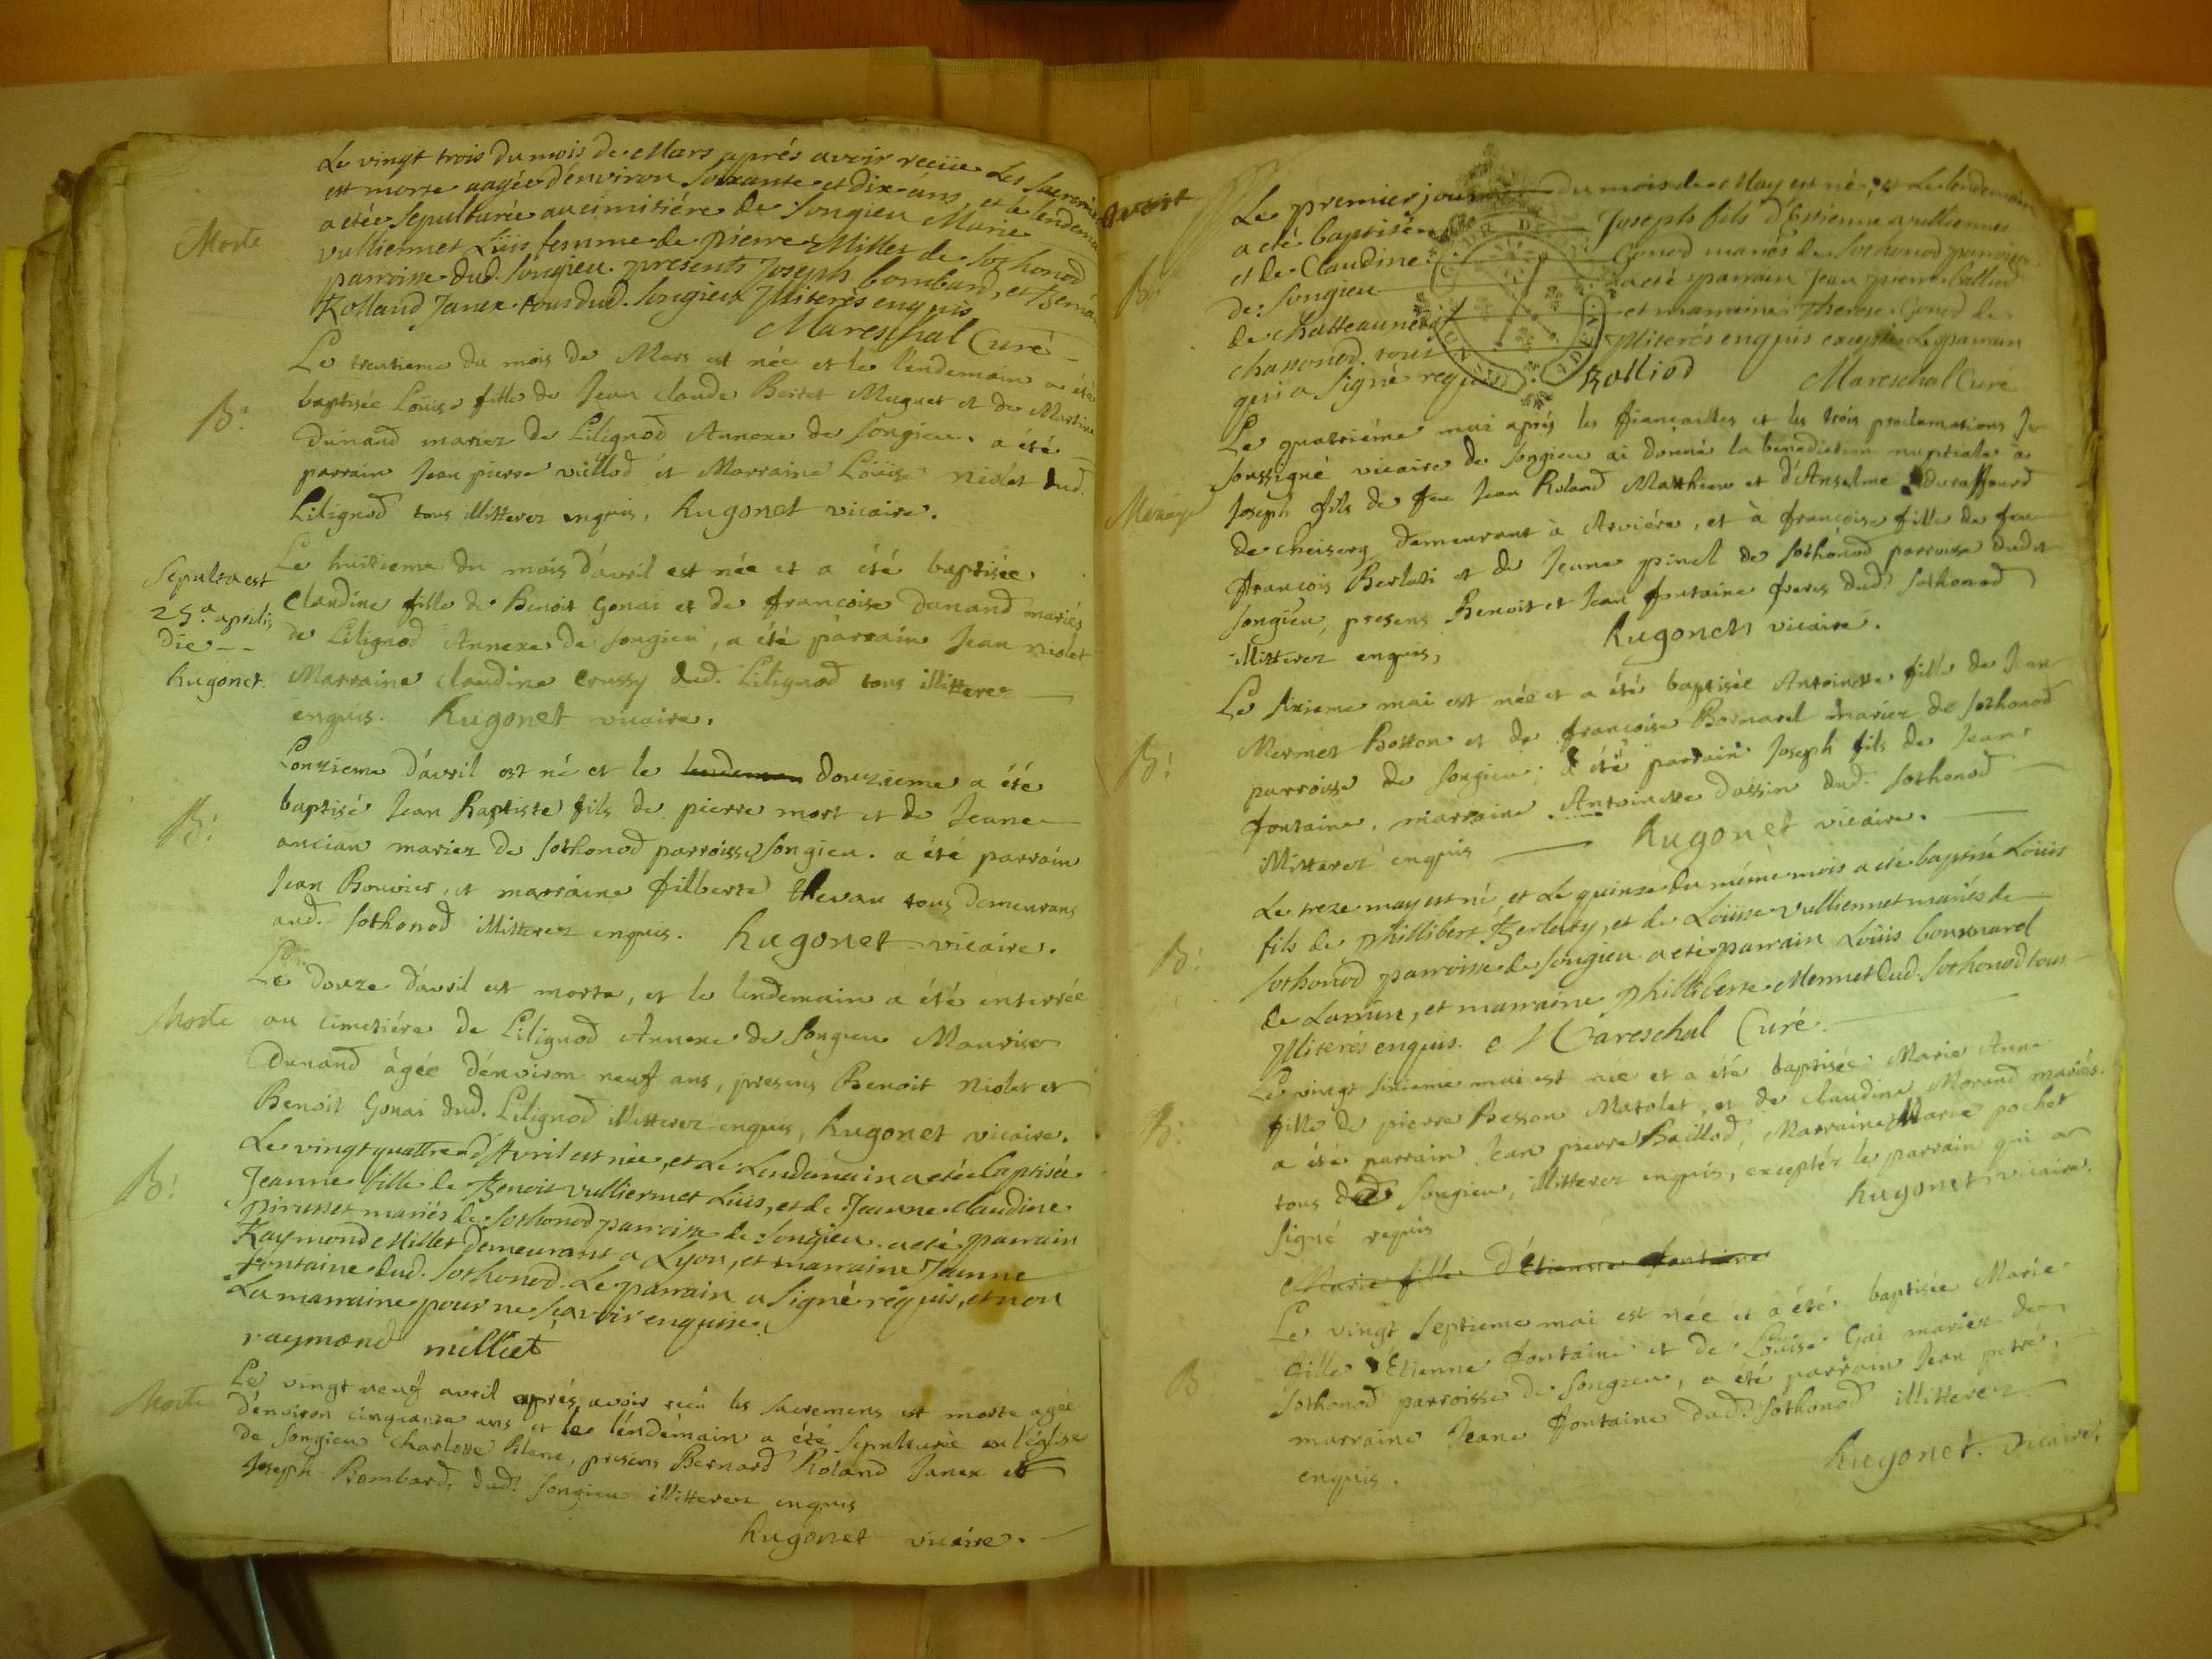 Le vingt trois du mois de Mars aprés avoir reçüe Les Sacremens
est morte aagée d'environ soixante et dix ans, et le lendemain
a etée sepulturée au cimitiére de Songieu Marie
Morte
vulliermet Lüis femme de pierre Millet de Sothonod
parroisse dud. Songieu. presents Joseph bombard, et Bernard
Rolland Janex tous dud. Songieux Illiterés enquis
Mareschal Curé
Le trentieme du mois de Mars est née et le lendemain a été
B:
baptisée Loüise fille de Jean claude Bertet Muguet et de Martine
Dunand mariez de Lilignod Annexe de Songieu. a été
parrain Jean pierre viellod et Marraine Loüise Niolet dud.
Lilignod tous illitterez enquis, Hugonet vicaire.
Le huitieme du mois d'avril est née et a été baptisée
Sepulta est
25a aprilis
die --
Hugonet.
claudine fille de Benoit Gonai et de françoise Dunand mariés
de Lilignod Annexe de Songieu, a été parrain Jean Niolet
Marraine claudine Crussy dud. Lilignod tous illitterez
enquis. Hugonet vicaire.
L'onzieme d'avril est né et le lendemain douzieme a été
B:
baptisé Jean Baptiste fils de pierre mort et de Jeanne
ancian mariez de Sothonod parroisse Songieu. a été parrain
Jean Bouvier, et marraine filberte thevau tous demeurans
aud. Sothonod illitterez enquis. Hugonet vicaire.
Le douze d'avril est morte, et le lendemain a été enterrée
Morte
au cimetiére de Lilignod Annexe de Songieu Maurise
Dunand âgée d'environ neuf ans, presens Benoit Niolet et
Benoit Gonai dud. Lilignod illitterez enquis, Hugonet vicaire.
Le vingt quattre d'Avril est née, et Le Lendemain a etée baptisée
B:
Jeanne fille de Benoit vulliermet Lüis, et de Jeanne claudine
pirusset mariés de Sothonod parroisse de Songieu. a eté parrain
Raymond Millet demeurant a Lyon, et marraine Jeanne
fontaine dud. Sothonod. Le parrain a signé requis, et non
La marraine pour ne sçavoir enquise.
raymond milliet
Le vingt neuf avril aprés avoir reçu les sacremens est morte agée
Morte
d'environ cinquante ans et le lendemain a été sepulturée en l'église
de Songieu charlotte Blanc, presens Bernard Roland Janex et
Joseph Bombard, dud. Songieu illitterez enquis
Hugonet vicaire.
Le premier jour du mois de May est né, et Le lendemain
a eté baptisé Joseph fils d'Estienne vulliermet
B:
et de Claudine Gonod mariés de Sothonod parroisse
de Songieu a eté parrain Jean pierre balliod
de chatteauneuf et marraine Therese Gonod de
chassonod. tous Illiterés enquis excepté Le parrain
qui a signé requis Balliod Mareschal Curé
Le quatriéme mai aprés les fiançailles et les trois proclamations Je
soussigné vicaire de Songieu ai donné la benediction nuptiale à
Mariage
Joseph fils de feu Jean Roland Matthieu et d'Anselme Duraffourd
de cheisery demeurant à Arviére, et à françoise fille de feu
françois Berlati et de Jeanne pinel de Sothonod parroisse dudit
Songieu, presens Benoit et Jean fontaine freres dud. Sothonod
illitterez enquis, Hugonet vicaire.
Le sixieme mai est née et a été baptisée Antoinette fille de Jean
B:
Mermet Botton et de françoise Bornarel mariez de Sothonod
parroisse de Songieu. a été parrain Joseph fils de Jean
fontaine, marraine Antoinette dassin dud. Sothonod
illitterez enquis Hugonet vicaire.
Le treze may est né, et Le quinze du même mois a eté baptisé Loüis
B:
fils de phillibert Berlaty, et de Loüise vulliermet mariés de
Sothonod parroisse de Songieu. a eté parrain Loüis bonnard
de Larrin, et marraine phillibert Mermet dud. Sothonod tous
Illiterés enquis. Mareschal Curé
Le vingt sixieme mai est née et a été baptisée Marie Anne
B:
fille de pierre Besson Matolet, et de claudine Morand mariés.
a été parrain Jean pierre Bailliod, Marraine Marie pochet
tous dud Songieu, illitterez enquis, exceptéz le parrain qui a
signé requis Hugonet vicaire.
Marie fille d'Etienne fontaine
Le vingt septieme mai est née et a été baptisée Marie
B:
fille d'Etienne fontaine et de Loüise Gai mariez de
Sothonod parroisse de Songieu, a été parrain Jean petré,
marraine Jeane fontaine dud. Sothonod illitterez
enquis. Hugonet. vicaire.